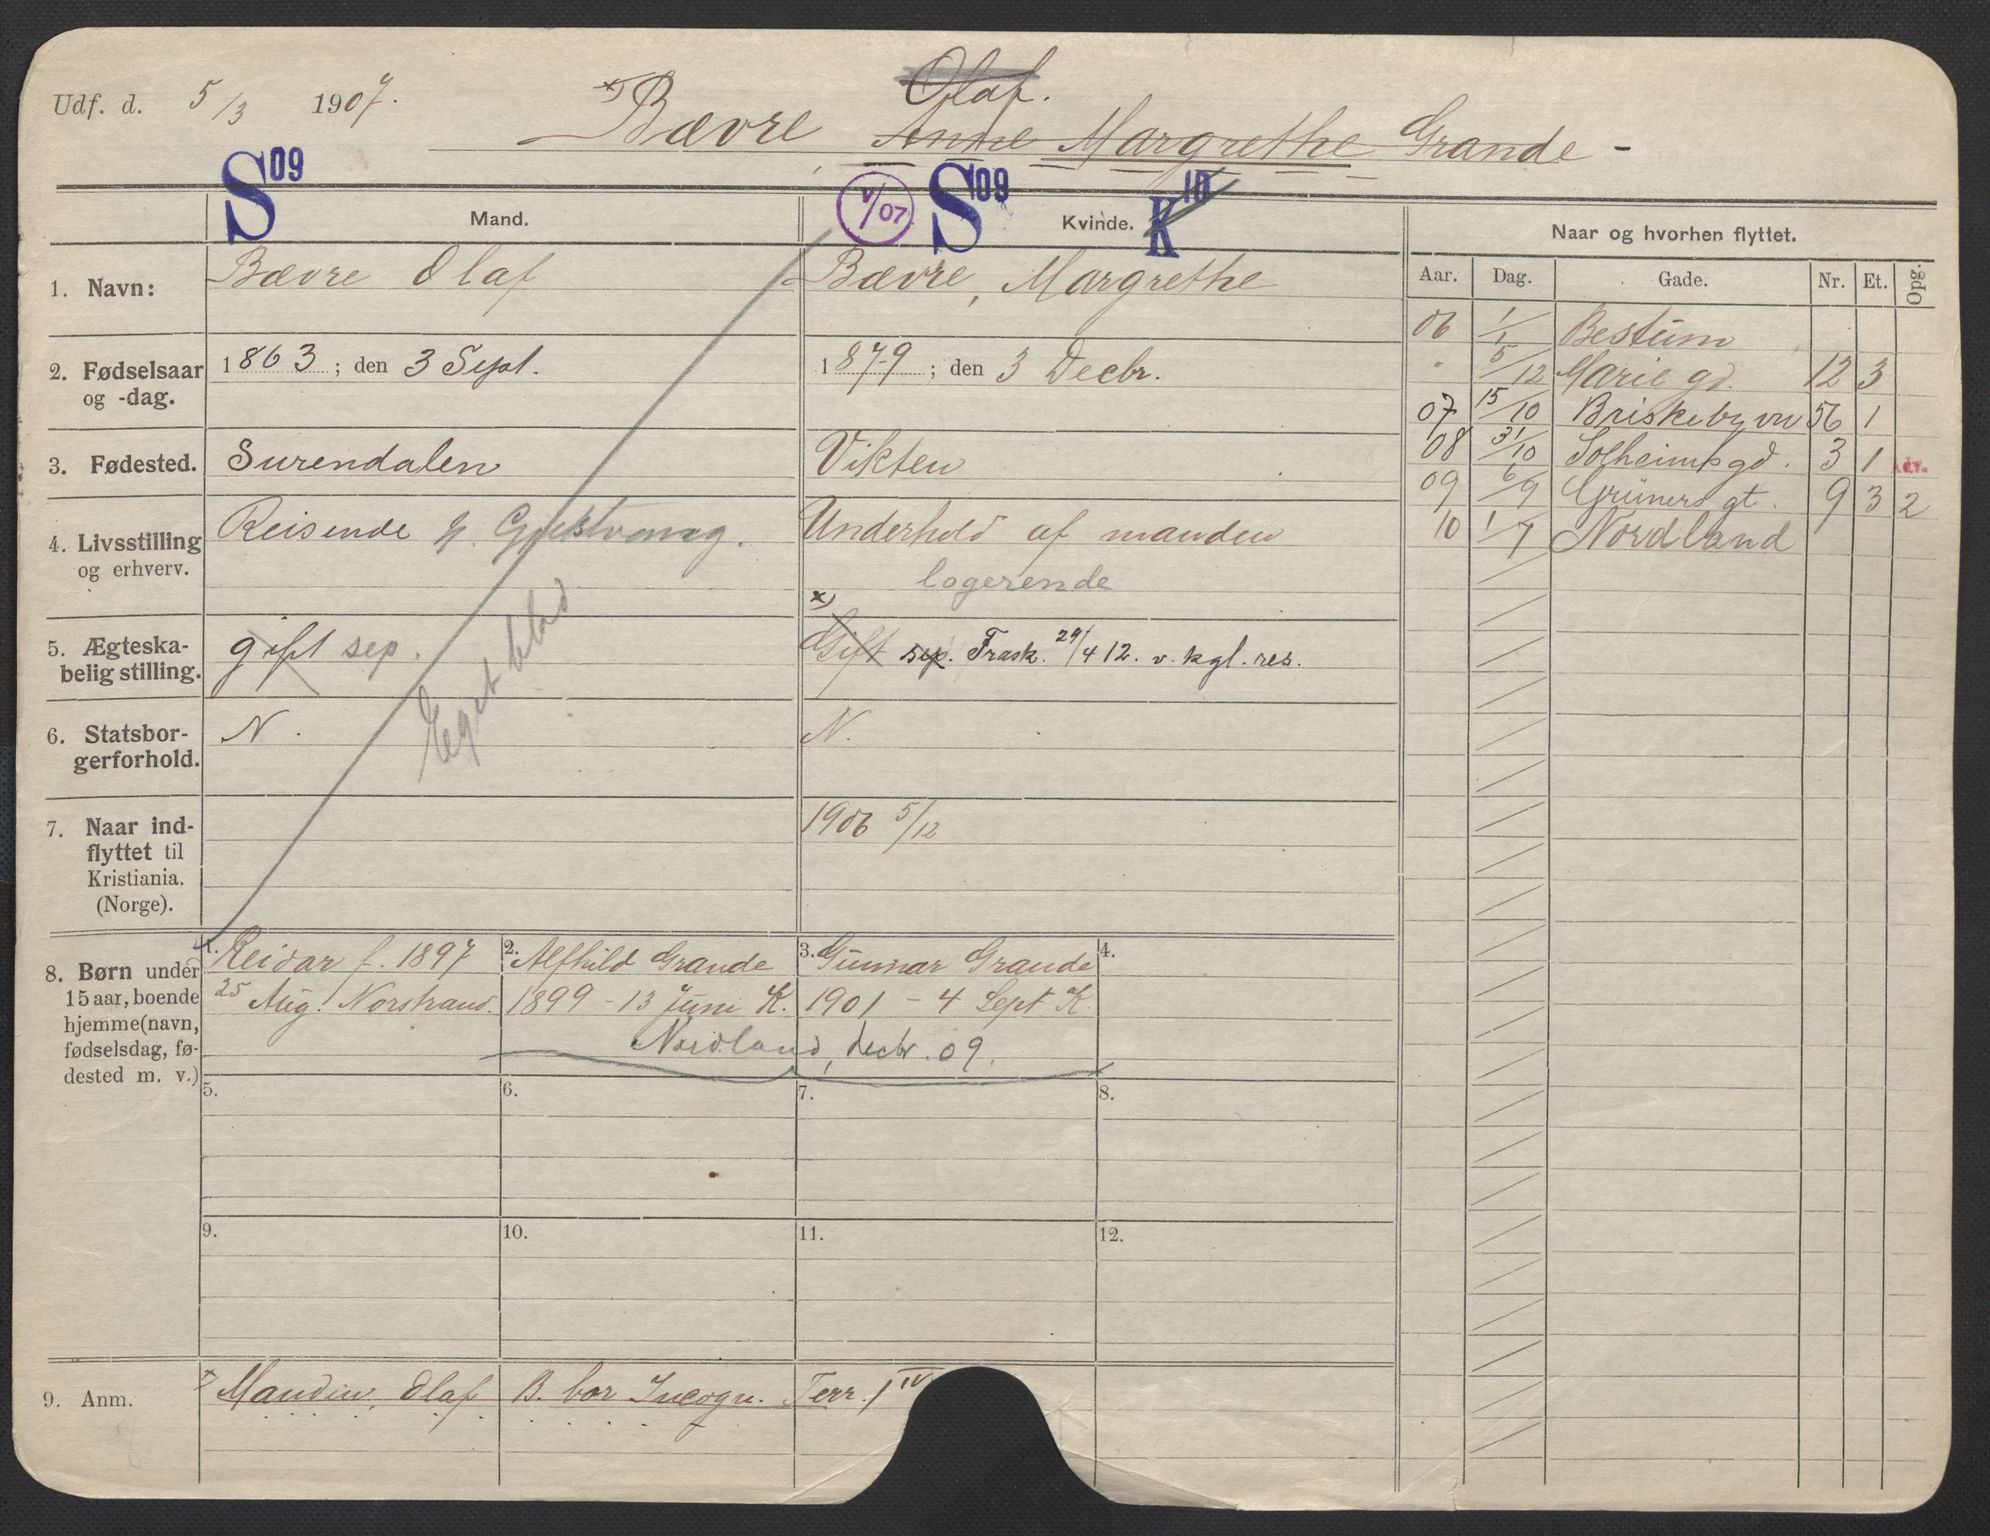 Olaf.
Udf. d. 5/3 1907.
*) Bævre Anne Margrethe Grande -
S09 V/07 S09 K10
Mand. Kvinde. Naar og hvorhen flyttet.
Aar. Dag. Gade. Nr. Et. Opg.
1. Navn: Bævre Olaf Bævre, Margrethe
06 1/1 Bestum
2. Fødselsaar og -dag. 1863; den 3 Sept. 1879; den 3 Decbr.
" 5/12 Marie gd. 12 3
07 15/10 Briskebyvn 56 1
3. Fødested. Surendalen Vikten
08 31/10 Solheimsgd. 3 1 Adv.
09 6/9 Grüners gt. 9 3 2
4. Livsstilling og erhverv. Reisende Underhold af manden
10 1/7 Nordland
logerende
5. Ægteska-
belig stilling. gift sep. *) Gift sep. Frask. 29/4 12. v. kgl. res.
Eget blad
6. Statsbor-
gerforhold. N. N.
7. Naar ind-
flyttet til
Kristiania.
(Norge).
1906 5/12
8. Børn under
15 aar, boende
hjemme (navn,
fødselsdag, fø-
dested m. v.)
1. Reidar f. 1897 2. Alfhild Grande 3. Gunnar Grande 4.
25 Aug. Norstrand. 1899 - 13 Juni K. 1901 - 4 Sept K.
Nordland, decbr. 09.
5. 6. 7. 8.
9. 10. 11. 12.
9. Anm. * Manden, Olaf B. bor Incogn. Terr. 1 IV